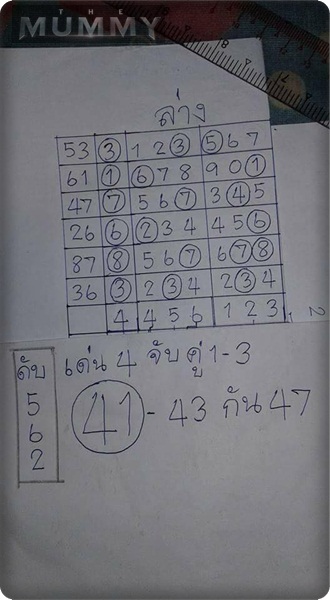 THE
MUMMY
ล่าง
53 3 1 2 3 5 6 7
61 1 6 7 8 9 0 1
47 7 5 6 7 3 4 5
26 6 2 3 4 4 5 6
87 8 5 6 7 6 7 8
36 3 2 3 4 2 3 4
4 4 5 6 1 2 3
ดับ
5
6
2
เด่น 4 จับคู่ 1-3
41 - 43 กัน 47